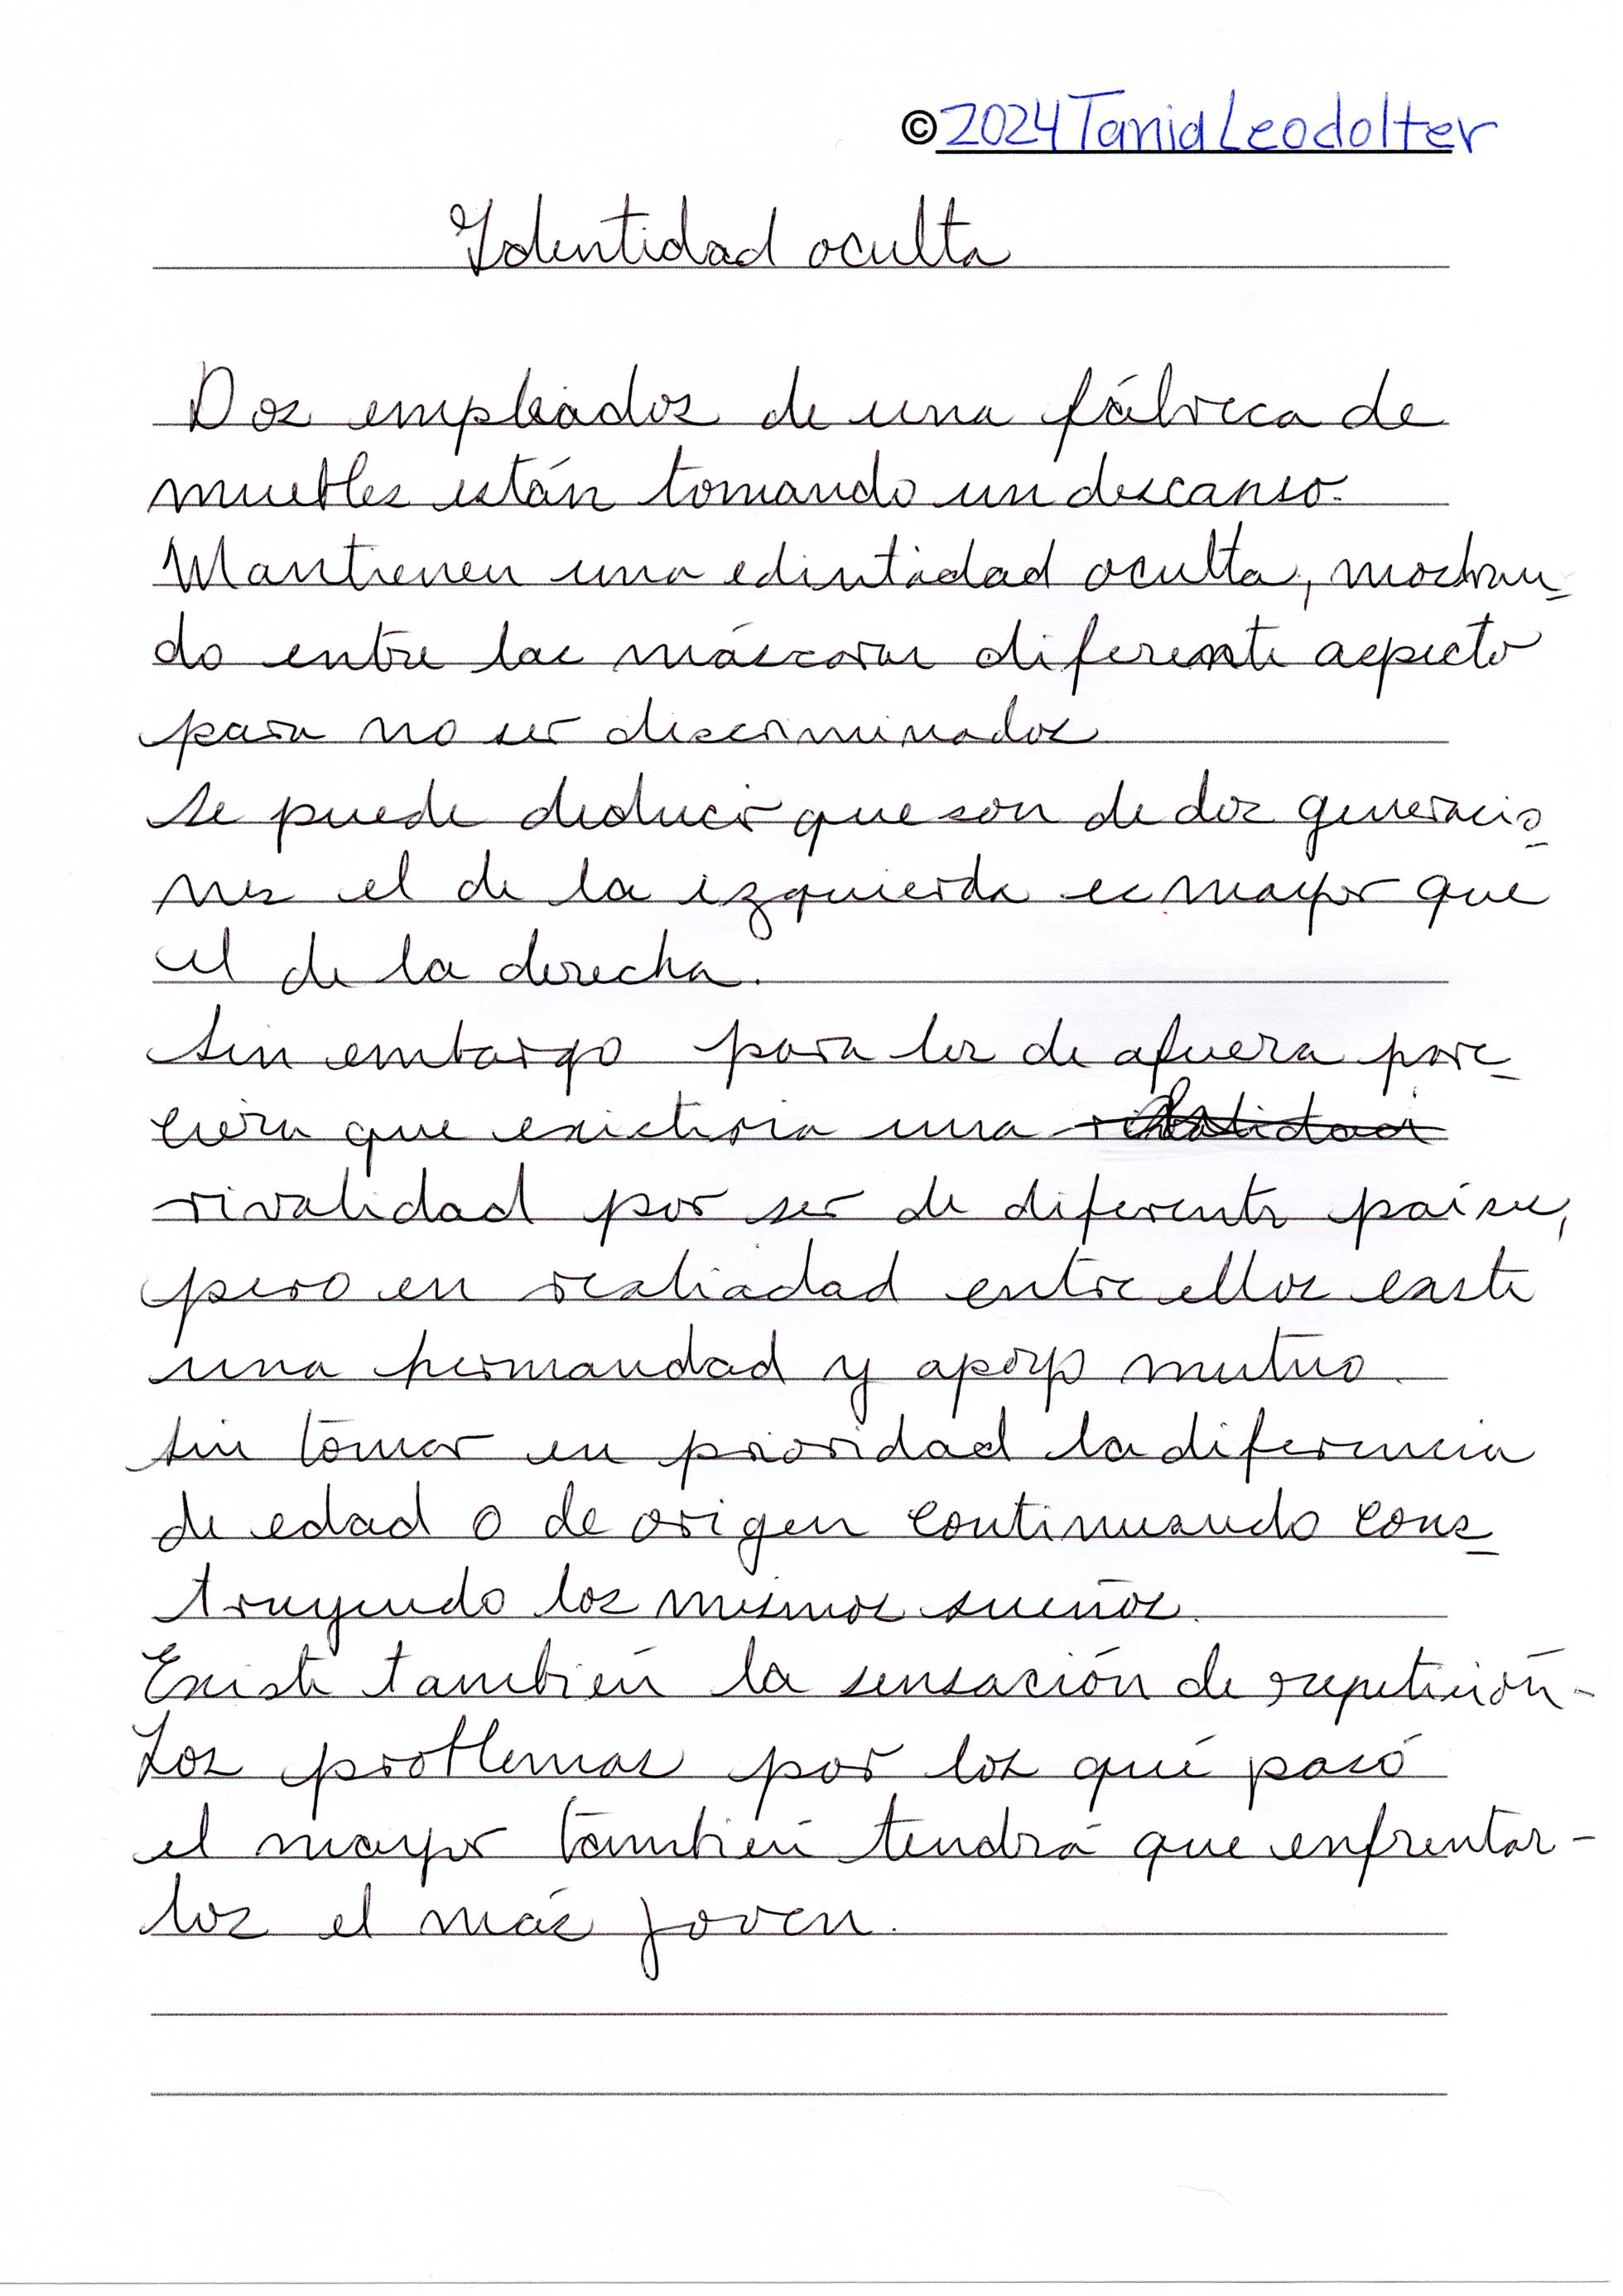 ©2024 Tania Leodolter
Identidad oculta
Dos empleados de una fábrica de
muebles están tomando un descanso.
Mantienen una edintidad oculta, mostran-
do entre las máscaras diferente aspecto
para no ser discriminados
se puede deducir que son de dos generacio-
nes el de la izquierda es mayor que
el de la derecha.
Sin embargo para los de afuera pare-
ciera que existiria una
rivalidad por ser de diferente países,
pero en realiadad entre ellos exste
una hermandad y apoyo mutuo.
Sin tomar en prioridad la diferencia
de edad o de origen continuando cons-
truyendo los mismos sueños.
Existe también la sensación de repetición-
Los problemas por los qué pasó
el mayor también tendrá que enfrentar-
los el más joven.